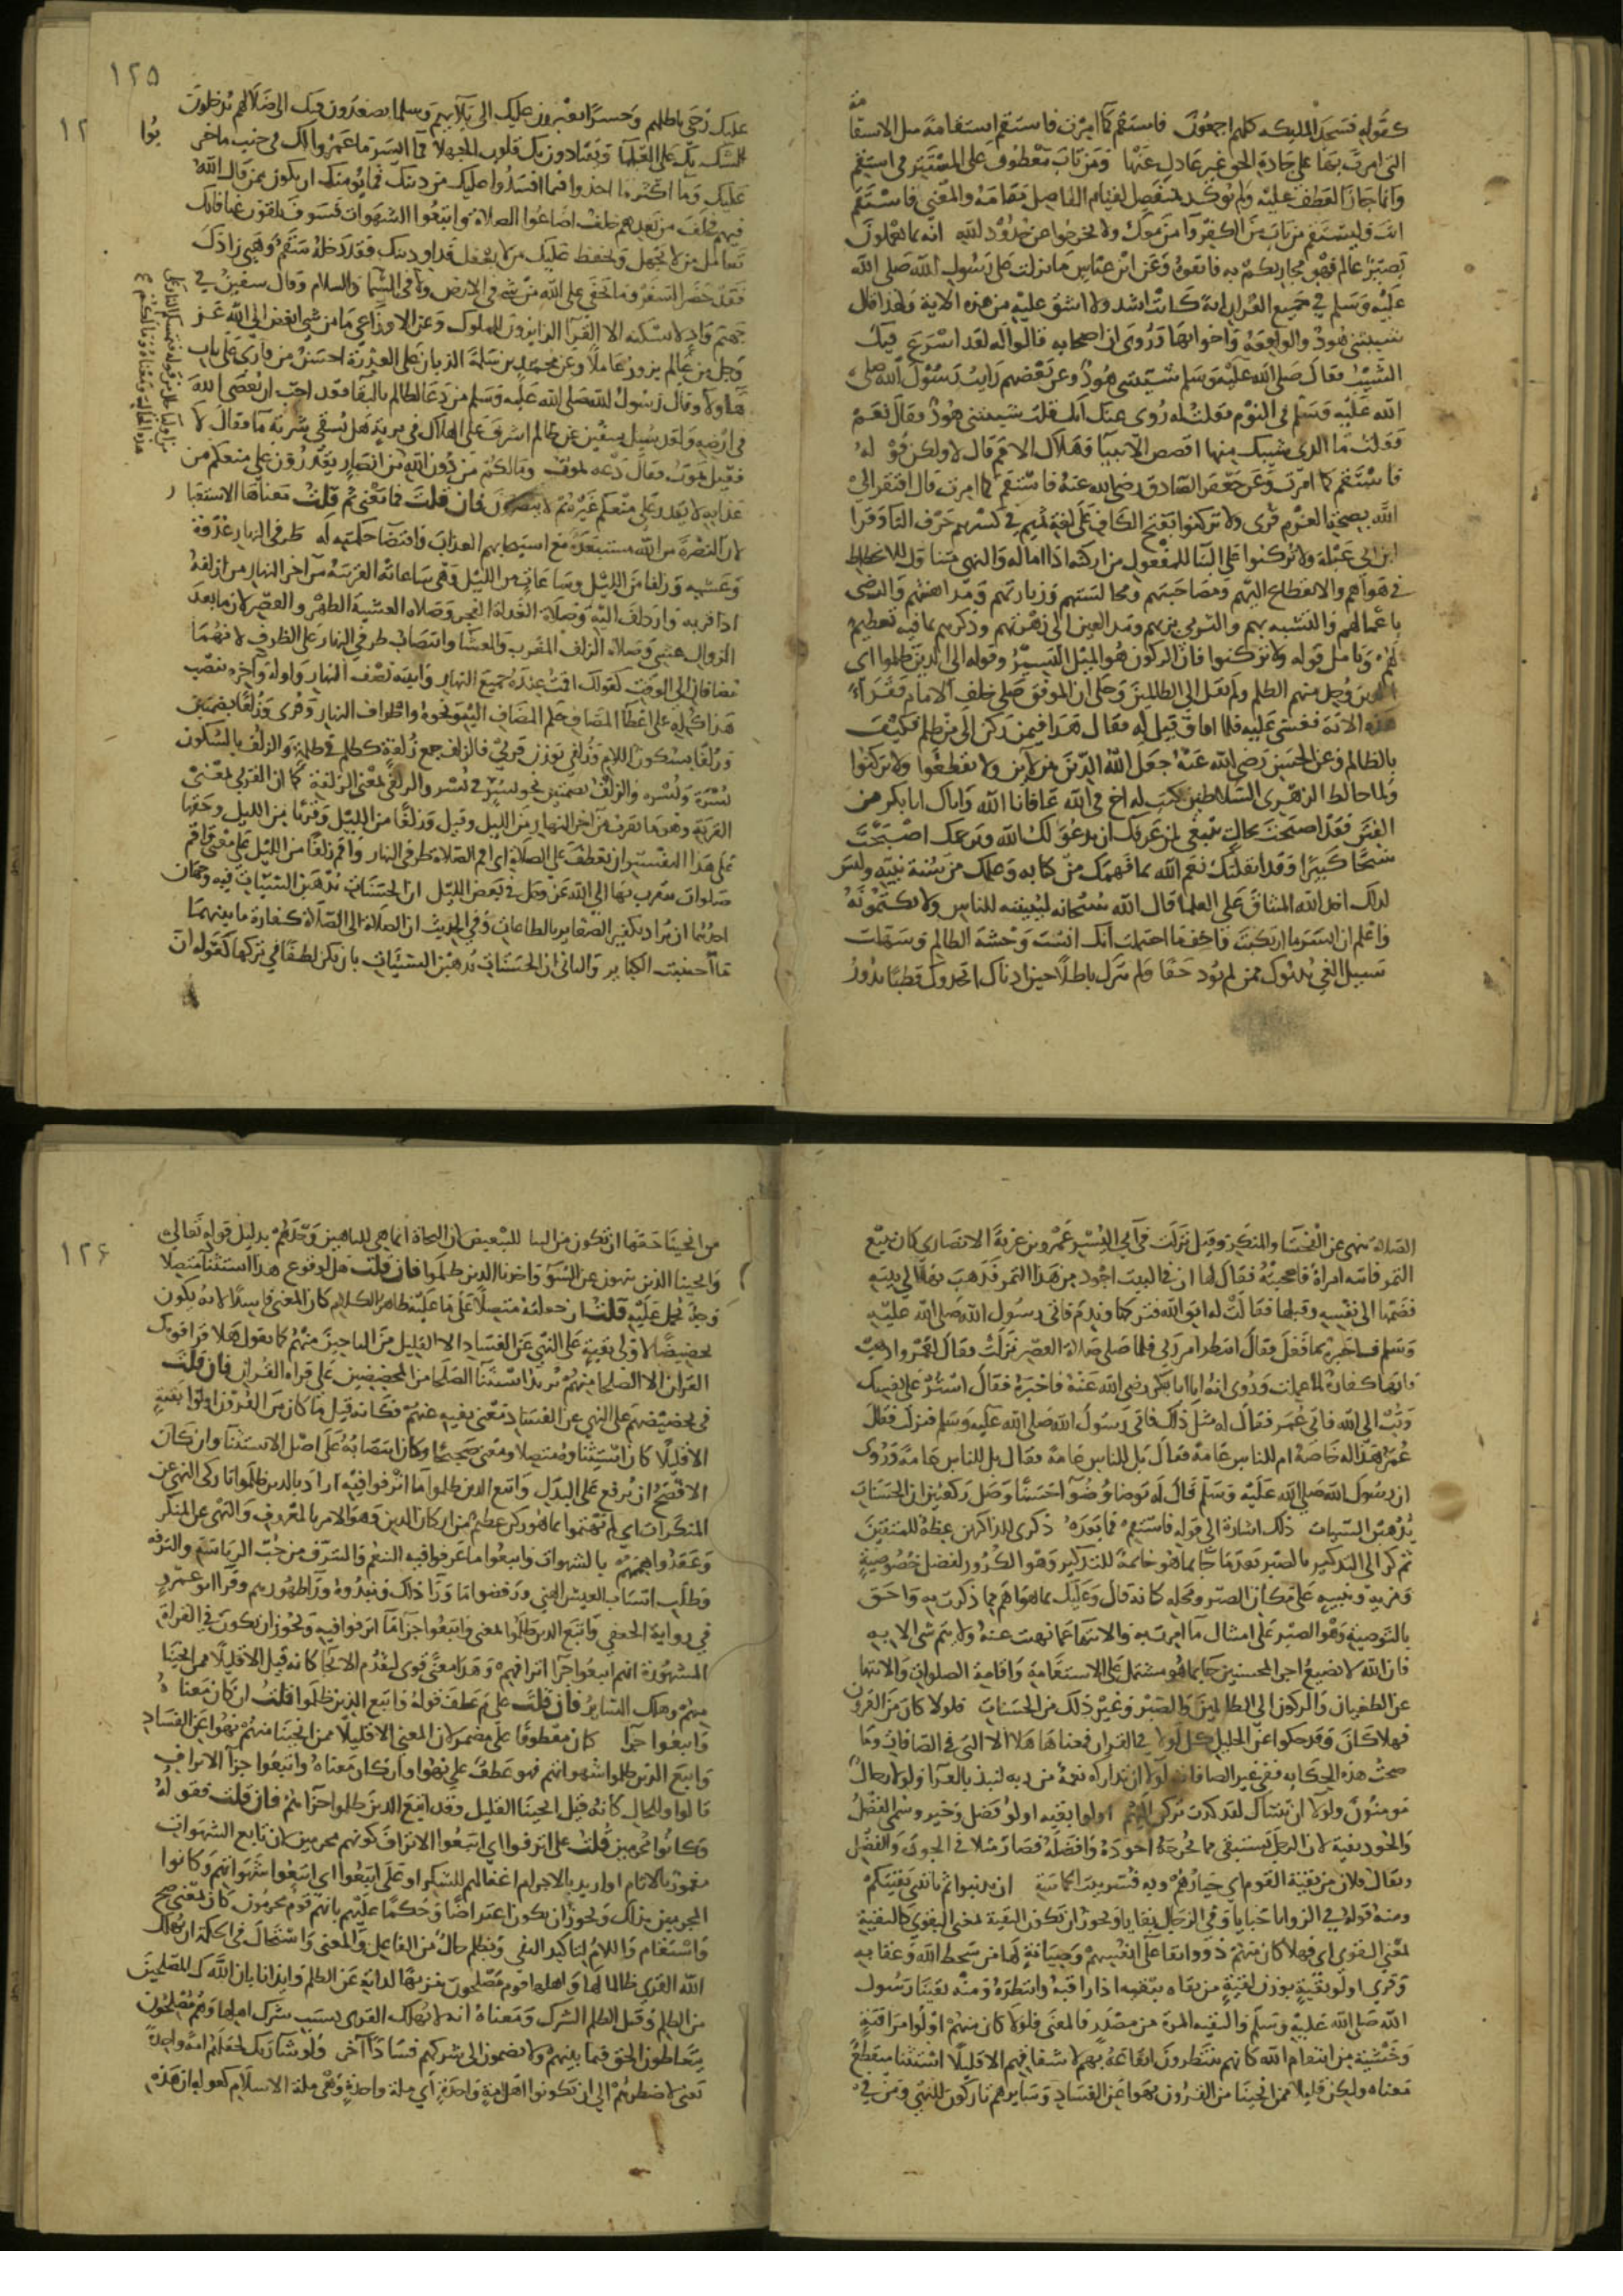 كقوله فسجد المليكه كلهم اجمعون فاستقم كما امرت فاستقم استقامة مثل الاستقامة
التى امرت بها على جادة الحق غير عادل عنها ومن تاب معطوف على المستتر في استقم
وانما جاز العطف عليه ولم يوكد بمنفصل لقيام الفاصل مقامه والمعنى فاستقم
انت وليستقم من تاب من الكفر وآمن معك ولا تطغوا ولا تخرجوا عن حدود الله انه بما تعملون
بصير عالم فهو مجازيكم به فاتقوه وعن ابن عباس ما نزلت على رسول الله صلى الله
عليه وسلم في جميع القرآن اية كانت اشد ولا اشق عليه من هذه الاية ولهذا قال
شيبتنى هود والواقعة واخواتهما وروى ان اصحابه قالوا له لقد اسرع فيك
الشيب فقال صلى الله عليه وسلم شيبتنى هود وعن بعضهم رايت رسول الله صلى
الله عليه وسلم في النوم فقلت له روى عنك انك قلت شيبتنى هود فقال نعم
فقلت ما الذى شيبك منها اقصص الانبيا وهلاك الامم قال لا ولكن قوله
فاستقم كما امرت وعن جعفر الصادق رضى الله عنه فاستقم كما امرت قال افتقر الى
الله بصحة العزم قرى ولا تركنوا بفتح الكاف على لغة تميم في كسرهم حرف التا وقرا
ابن ابى عبلة ولا تركنوا على البنا للمفعول من اركنه اذا اماله والنهى متناول للانحطاط
في هواهم والانقطاع اليهم ومصاحبتهم ومجالستهم وزيارتهم ومداهنتهم والرضى
باعمالهم والتشبه بهم والتزيى بزيهم ومد العين الى زهرتهم وذكرهم بما فيه تعظيم
لهم وتامل قوله ولا تركنوا فان الركون هو الميل اليسير وقوله الى الذين ظلموا اى
الذين وجد منهم الظلم ولم يقل الى الظالمين وحكى ان الموفق صلى خلف الامام فقرا
هذه الاية فغشى عليه فلما افاق قيل له فقال هذا فيمن ركن الى من ظلم فكيف
بالظالم وعن الحسن رضى الله عنه جعل الله الدين بين لائين ولا تطغوا ولا تركنوا
ولما خالط الزهرى السلاطين كتب له اخ في الله عافانا الله واياك ابا بكر من
الفتن فقد اصبحت بحال ينبغى لمن عرفك ان يدعو لك الله ويرحمك اصبحت
شيخا كبيرا وقد اثقلتك نعم الله بما فهمك من كتابه وعلمك من سنة نبيه وليس
كذلك اخذ الله الميثاق على العلما قال الله سبحانه ليبيننه للناس ولا يكتمونه
واعلم ان ايسر ما ارتكبت واخف ما احتملت انك انست وحشة الظالم وسهلت
سبيل الغى بدنوك ممن لم يود حقا ولم يترك باطلا حين ادناك اتخذوك قطبا تدور
١٢٥
عليك رحى باطلهم وجسرا يعبرون عليك الى بلايهم وسلما يصعدون فيك الى ضلالهم يدخلون
الشك بك على العلما ويقتادون بك قلوب الجهلا فما ايسر ما عمروا لك في جنب ما خربوا
١٢
عليك وما اكثر ما اخذوا فيما افسدوا عليك من دينك فما يومنك ان تكون ممن قال الله
فيهم فخلف من بعدهم خلف اضاعوا الصلاة واتبعوا الشهوات فسوف يلقون غيا فانك
تعامل من لا يجهل ويحفظ عليك من لا يغفل فداو دينك فقد دخله سقم وهيى زادك
فقد حضر السفر وما يخفى على الله من شى في الارض ولا في السما والسلام وقال سفين في
جهنم واد لا يسكنه الا القرا الزايرون للملوك وعن الاوزاعى ما من شى ابغض الى الله عز
وجل من عالم يزور عاملا وعن محمد بن سلمة الذباب على العذرة احسن من قارى على باب
هاولا وقال رسول الله صلى الله عليه وسلم من دعا لظالم بالبقا فقد احب ان يعصى الله
في ارضه ولقد سيل سفين عن ظالم اشرف على الهلاك في برية هل يسقى شربة ما فقال لا
فقيل يموت فقال دعه يموت وما لكم من دون الله من انصار يقدرون على منعكم من
عذابه لا يقدر على منعكم غيره ثم لا ينصرون فان قلت فما معنى ثم قلت معناها الاستبعاد
لان النصرة من الله مستبعدة مع استيجابهم العذاب واقتضا حكمته له طرفي النهار غدوة
وعشية وزلفا من الليل وساعات من الليل وهى ساعاته القريبة من اخر النهار من ازلفه
اذا قربه وازدلف اليه وصلاة الغداة الفجر وصلاة العشية الظهر والعصر لان ما بعد
الزوال عشى وصلاة الزلف المغرب والعشا وانتصاب طرفي النهار على الظرف لانهما
مضافان الى الوقت كقولك اقمت عنده جميع النهار واتيته نصف النهار واوله وآخره تنصب
هذا كله على اعطا المضاف حكم المضاف اليه ونحوه واطراف النهار وقرى وزلفا بضمتين
وزلفا بسكون اللام وزلفى بوزن قربى فالزلف جمع زلفة كظلم في ظلمة والزلف بالسكون
نحو بسرة وبسر والزلف بضمتين نحو بسر في بسر والزلفى بمعنى الزلفة كما ان القربى بمعنى
القربة وهو ما يقرب من آخر النهار من الليل وقيل وزلفا من الليل وقربا من الليل وحقها
على هذا التفسير ان تعطف على الصلاة اى اقم الصلاة طرفي النهار واقم زلفا من الليل على معنى واقم
صلوات تتقرب بها الى الله عز وجل في بعض الليل ان الحسنات يذهبن السيئات فيه وجهان
احدهما ان يراد تكفير الصغاير بالطاعات وفي الحديث ان الصلاة الى الصلاة كفارة ما بينهما
ما اجتنبت الكباير والثانى ان الحسنات يذهبن السيئات بان يكن لطفا في تركها كقوله ان
الصلاة تنهى عن الفحشا والمنكر وقيل نزلت في ابى اليسر عمرو بن غزية الانصارى كان يبيع
التمر فاتته امراة فاعجبته فقال لها ان في البيت اجود من هذا التمر فذهب بها الى بيته
فضمها الى نفسه وقبلها فقالت له اتق الله فتركها وندم فاتى رسول الله صلى الله عليه
وسلم فاخبره بما فعل فقال انتظر امر ربى فلما صلى صلاة العصر نزلت فقال نعم اذهب
فانها كفارة لما عملت وروى انه اتى ابا بكر رضى الله عنه فاخبره فقال استر على نفسك
وتب الى الله فاتى عمر فقال له مثل ذلك فاتى رسول الله صلى الله عليه وسلم فنزلت فقال
عمر هذا له خاصة ام للناس عامة فقال بل للناس عامة وروى
ان رسول الله صلى الله عليه وسلم قال له توضا وضوا حسنا وصل ركعتين ان الحسنات
يذهبن السيات ذلك اشارة الى قوله فاستقم فما بعده ذكرى للذاكرين عظة للمتقين
ثم كر الى التذكير بالصبر بعد ما جا بما هو خاتمة للتذكير وهو الكرور لفضل خصوصية
ومزية وتنبيه على مكان الصبر ومحله كانه قال وعليك بما هو اهم مما ذكرت به واحق
بالتوصية وهو الصبر على امتثال ما امرت به والانتها عما نهيت عنه ولا يتم شى الا به
فان الله لا يضيع اجر المحسنين جا بما هو مشتمل على الاستقامة واقامة الصلوات والانتها
عن الطغيان والركون الى الظالمين والصبر وغير ذلك من الحسنات فلولا كان من القرون
فهلا كان وقد حكوا عن الخليل كل لولا في القرآن فمعناها هلا الا التى في الصافات وما
صحت هذه الحكاية ففى غير الصافات لولا ان تداركه نعمة من ربه لنبذ بالعرا ولولا رجال
مومنون ولولا ان ثبتناك لقد كدت تركن اليهم اولوا بقية اولو فضل وخير وسمى الفضل
والجود بقية لان الرجل يستبقى مما يخرجه اجوده وافضله فصار مثلا في الجودة والفضل
ويقال فلان من بقية القوم اى خيارهم وبه فسر بيت الحماسة ان تذنبوا ثم ياتينى بقيتكم
ومنه قولهم في الزوايا خبايا وفي الرجال بقايا ويجوز ان تكون البقية بمعنى البقوى كالتقية
بمعنى التقوى اى فهلا كان منهم ذووا بقا على انفسهم وصيانة لها من سخط الله وعقابه
وقرى اولو بقية بوزن لقية من بقاه يبقيه اذا راقبه وانتظره ومنه بقينا رسول
الله صلى الله عليه وسلم والبقية المرة من مصدره والمعنى فلولا كان منهم اولوا مراقبة
وخشية من انتقام الله كانهم ينتظرون ايقاعه بهم لاشفاقهم الا قليلا استثنا منقطع
معناه ولكن قليلا ممن انجينا من القرون نهوا عن الفساد وسايرهم تاركون للنهى ومن في
١٢٦
من انجينا حقها ان تكون من البيا للتبعيض لان النجاة انما هى للناهين وحدهم بدليل قوله تعالى
وانجينا الذين ينهون عن السو واخذنا الذين ظلموا فان قلت هل لوقوع هذا الاستثنا متصلا
وجه يحمل عليه قلت ان جعلته متصلا على ما عليه ظاهر الكلام كان المعنى فاسدا لانه يكون
تحضيضا لاولى البقية على النهى عن الفساد الا القليل من الناجين منهم كما تقول هلا قرا قومك
القرآن الا الصلحا منهم تريد استثنا الصلحا من المحضضين على قراة القران فان قلت
في تحضيضهم على النهى عن الفساد معنى نفيه عنهم فكانه قيل ما كان من القرون اولوا بقية
الا قليلا كان استثنا متصلا ومعنى صحيحا وكان انتصابه على اصل الاستثنا وان كان
الافصح ان يرفع على البدل واتبع الذين ظلموا ما اترفوا فيه اراد بالذين ظلموا تاركى النهى عن
المنكرات اى لم يهتموا بما هو ركن عظيم من اركان الدين وهو الامر بالمعروف والنهى عن المنكر
وعقدوا هممهم بالشهوات واتبعوا ما عرفوا فيه التنعم والترف من حب الرياسة والثروة
وطلب اسباب العيش الهنى ورفضوا ما ورا ذلك ونبذوه ورا ظهورهم وقرا ابو عمرو
في رواية الجعفى واتبع الذين ظلموا بمعنى واتبعوا جزا ما اترفوا فيه ويجوز ان يكون في القراة
المشهورة انهم اتبعوا جزا اترافهم وهذا معنى قوى لتقدم الانجا كانه قيل الا قليلا ممن انجينا
منهم وهلك الساير فان قلت على م عطف قوله واتبع الذين ظلموا قلت ان كان معناه
واتبعوا جزا كان معطوفا على مضمر لان المعنى الا قليلا ممن انجينا منهم نهوا عن الفساد
واتبع الذين ظلموا شهواتهم فهو عطف على نهوا وان كان معناه واتبعوا جزا الاتراف
قالوا وللحال كانه قيل انجينا القليل وقد اتبع الذين ظلموا جزاهم فان قلت فقوله
وكانوا مجرمين قلت على اترفوا اى اتبعوا الاتراف وكونهم مجرمين لان تابع الشهوات
مغمور بالاثام او اريد بالاجرام اغفالهم للشكر او على اتبعوا اى اتبعوا شهواتهم وكانوا
مجرمين بذلك ويجوز ان يكون اعتراضا وحكما عليهم بانهم قوم مجرمون كان بمعنى صح
واستقام واللام لتاكيد النفى وبظلم حال من الفاعل والمعنى واستحال في الحكمة ان يهلك
الله القرى ظالما لها واهلها قوم مصلحون تنزيها لذاته عن الظلم وايذانا بان اهلاك المصلحين
من الظلم وقيل الظلم الشرك ومعناه انه لا يهلك القرى بسبب شرك اهلها وهم مصلحون
يتعاطون الحق فيما بينهم ولا يضمون الى شركهم فسادا آخر ولو شا ربك لجعلهم امة واحدة
يعنى لاضطرهم الى ان يكونوا اهل امة واحدة اى ملة واحدة وهى ملة الاسلام كقوله ان هذه